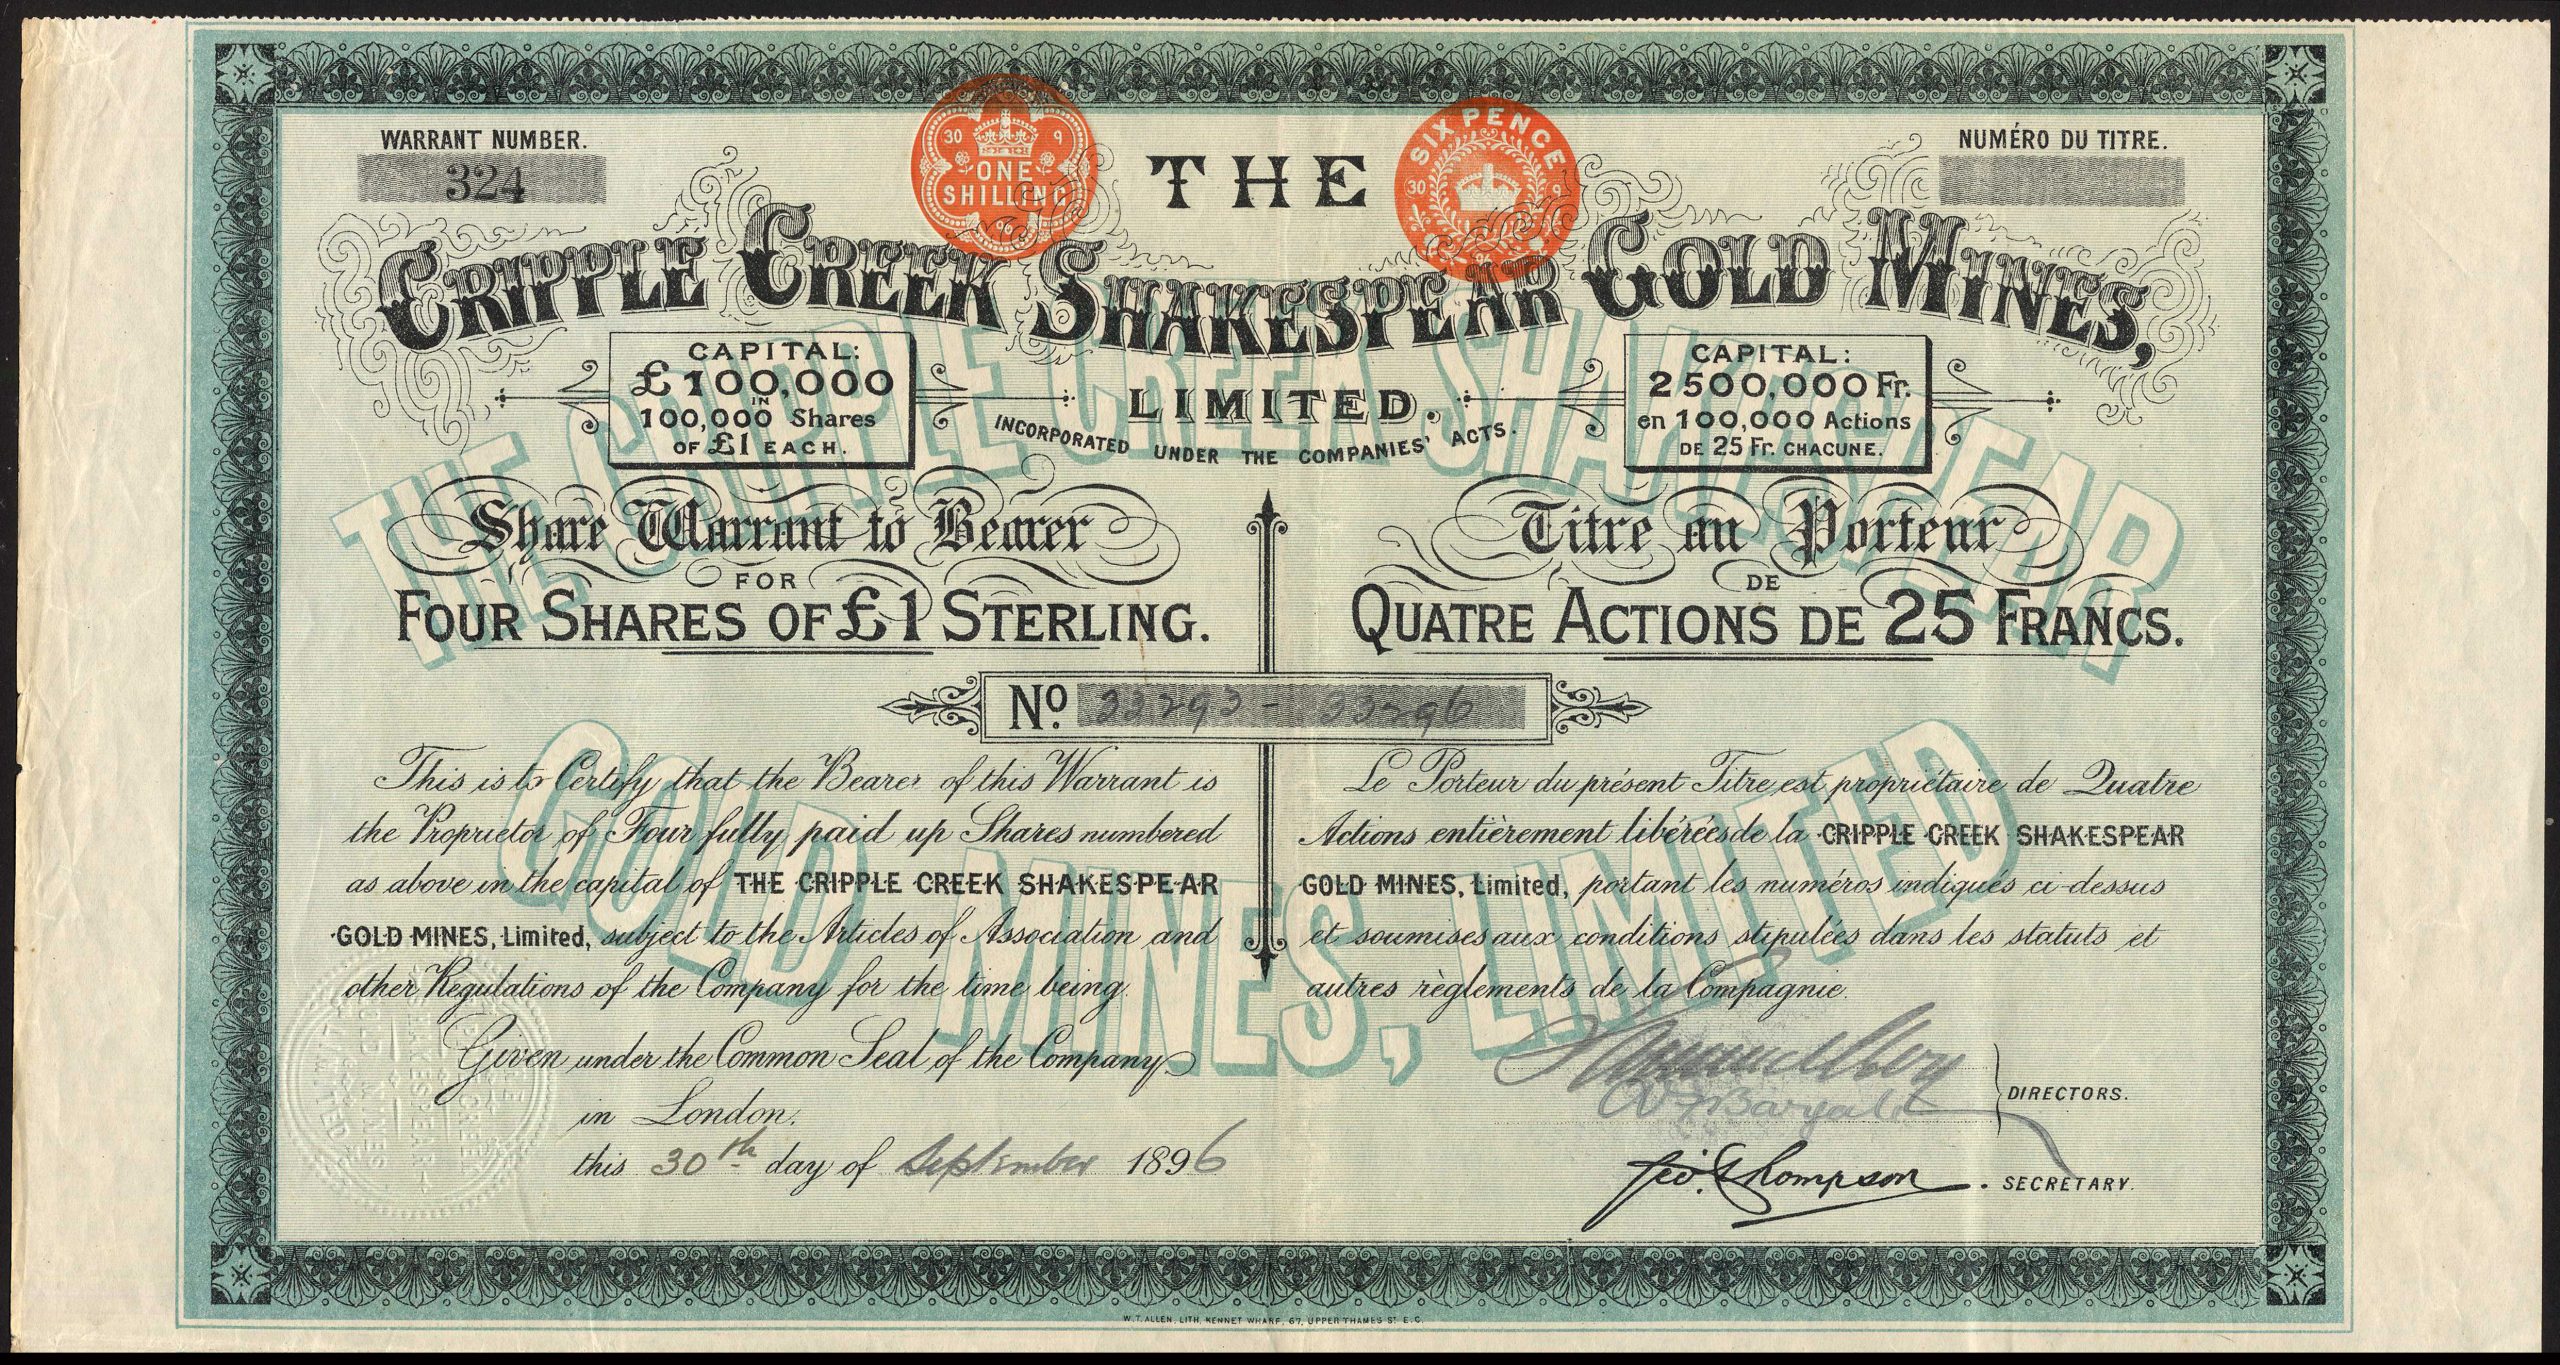 WARRANT NUMBER.
324
NUMÉRO DU TITRE.
30 9
ONE
SHILLING
96
SIX PENCE
30 9
96
THE
CRIPPLE CREEK SHAKESPEAR GOLD MINES,
LIMITED.
INCORPORATED UNDER THE COMPANIES' ACTS.
CAPITAL:
£100,000
IN
100,000 Shares
OF £1 EACH.
CAPITAL:
2500,000 Fr.
en 100,000 Actions
DE 25 Fr. CHACUNE.
THE CRIPPLE CREEK SHAKESPEAR
GOLD MINES, LIMITED
Share Warrant to Bearer
FOR
FOUR SHARES OF £1 STERLING.
Titre au Porteur
DE
QUATRE ACTIONS DE 25 FRANCS.
No. 33293 - 33296
This is to Certify that the Bearer of this Warrant is
the Proprietor of Four fully paid up Shares numbered
as above in the capital of THE CRIPPLE CREEK SHAKESPEAR
GOLD MINES, Limited, subject to the Articles of Association and
other Regulations of the Company for the time being.
Given under the Common Seal of the Company
in London.
this 30th day of September 1896
Le Porteur du présent Titre est propriétaire de Quatre
Actions entièrement libérées de la CRIPPLE CREEK SHAKESPEAR
GOLD MINES, Limited, portant les numéros indiqués ci-dessus
et soumises aux conditions stipulées dans les statuts et
autres règlements de la Compagnie.
DIRECTORS.
Geo. Thompson
SECRETARY.
W.T. ALLEN, LITH, KENNET WHARF, 67, UPPER THAMES ST E.C.